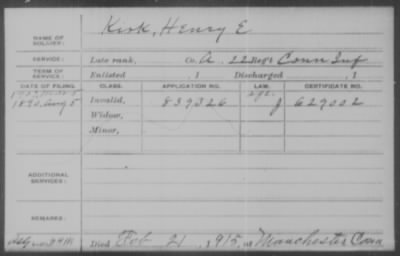 NAME OF SOLDIER: Kirk, Henry E
SERVICE: Late rank, Co. A, 22 Reg't Conn Inf
TERM OF SERVICE: Enlisted , 1 Discharged , 1
DATE OF FILING. CLASS. APPLICATION NO. LAW. CERTIFICATE NO.
1890, Aug 5 Invalid, 839326 J 629002
Widow,
Minor,
ADDITIONAL SERVICES:
REMARKS:
Died Feb 21, 1915, at Manchester Conn